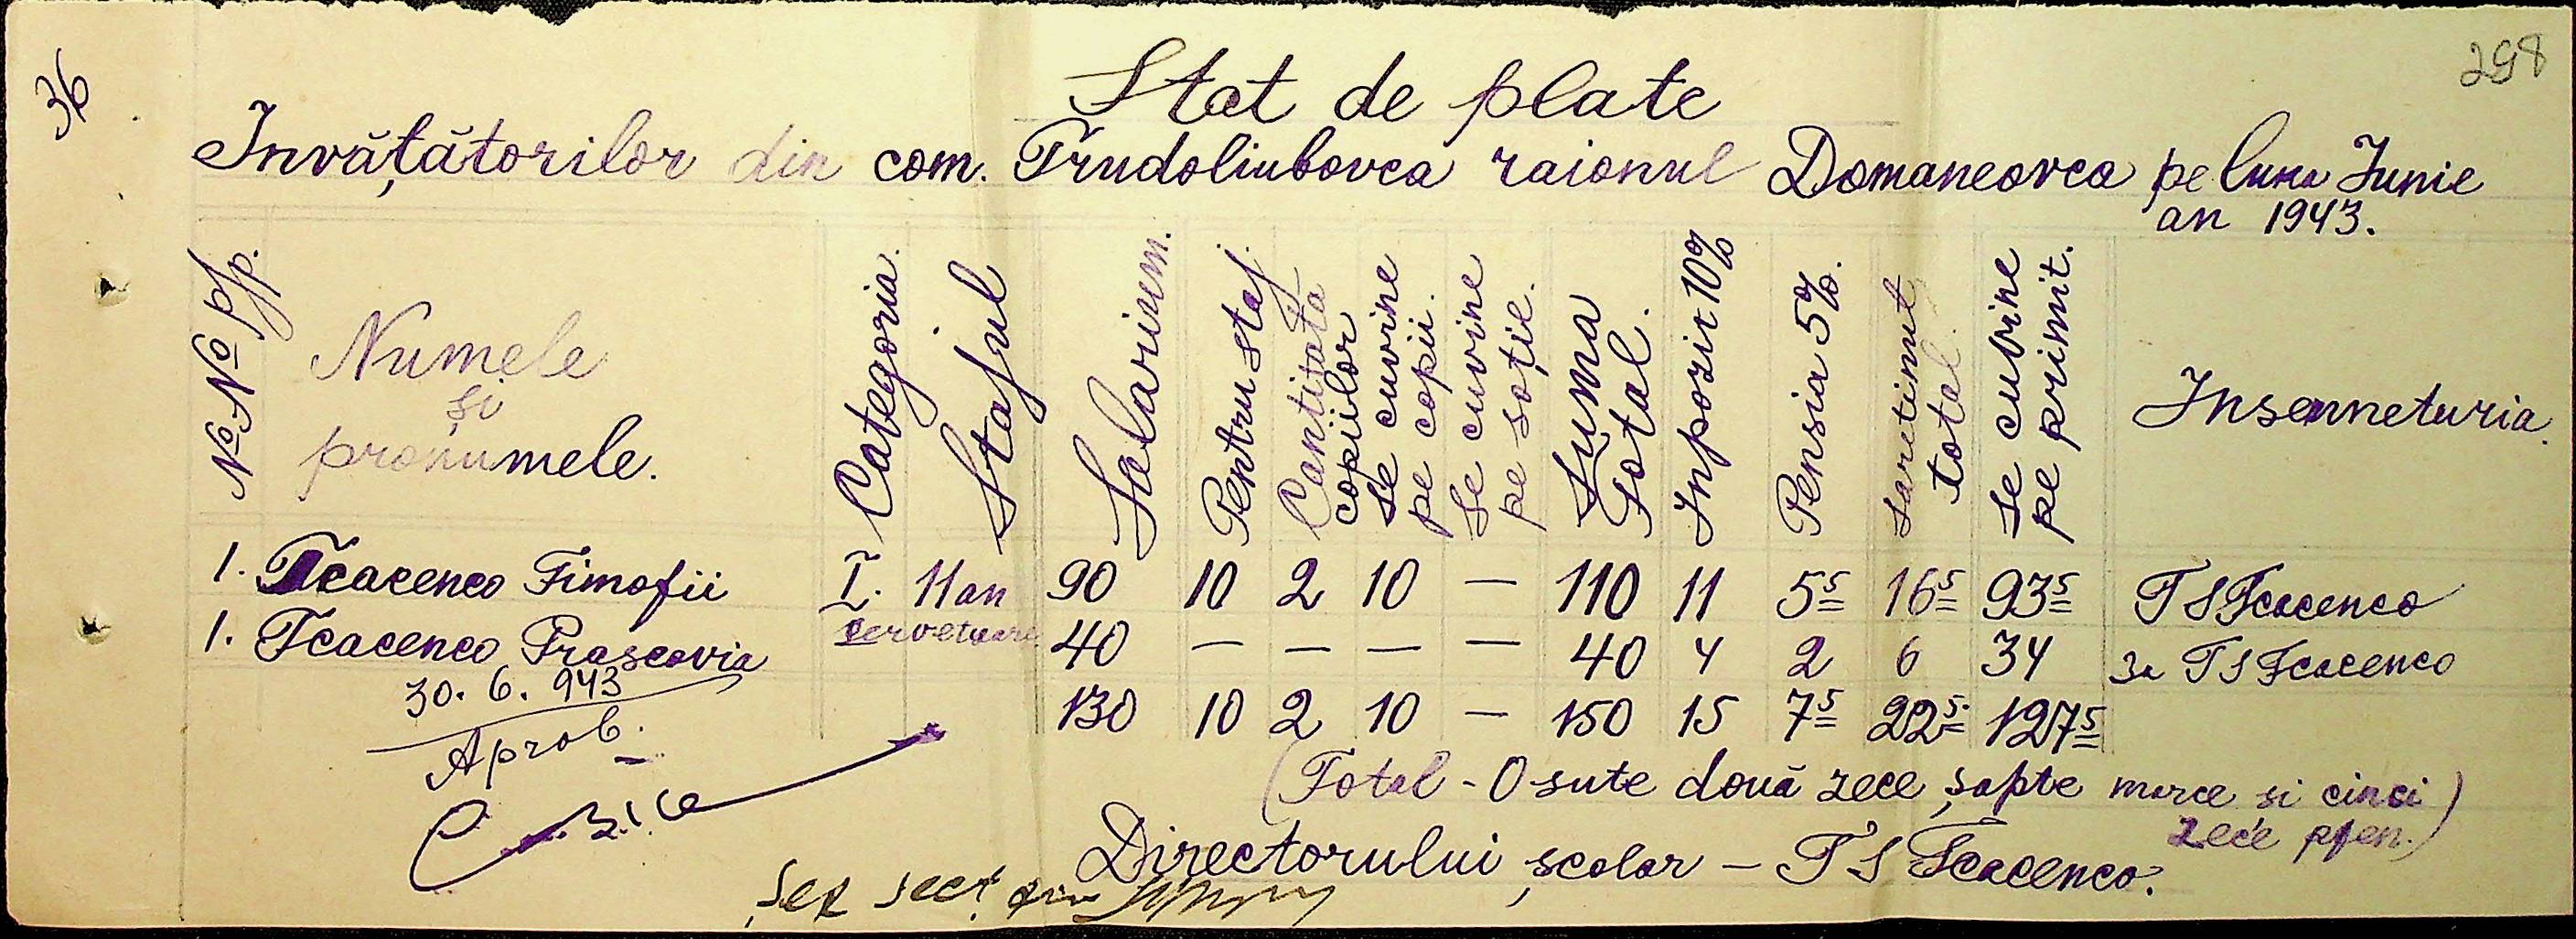 36
298
Stat de plate
Învățătorilor din com. Trudoliubovca raionul Domaneovca pe luna Iunie
an 1943.
№№ p/p.
Numele
și
pronumele.
Categoria.
Stajul
Salarium.
Pentru staj.
Cantitata
copiilor
se cuvine
pe copii.
se cuvine
pe soție.
Suma
Total.
Inpozit 10%
Pensia 5%.
saretinut
total.
se cuvine
pe primit.
Insemneturia.
1. Tcacenco Timofii I. 11 an 90 10 2 10 — 110 11 5 5 16 5 93 5 T S Tcacenco
1. Tcacenco Prascovia servetoare 40 — — — — 40 4 2 6 34 за T S Tcacenco
130 10 2 10 — 150 15 7 5 22 5 127 5
30. 6. 943
Aprob.
(Total - O sute două zece șapte marce si cinci
zece pfen.)
Directorului școlar — T S Tcacenco.
Șef sect